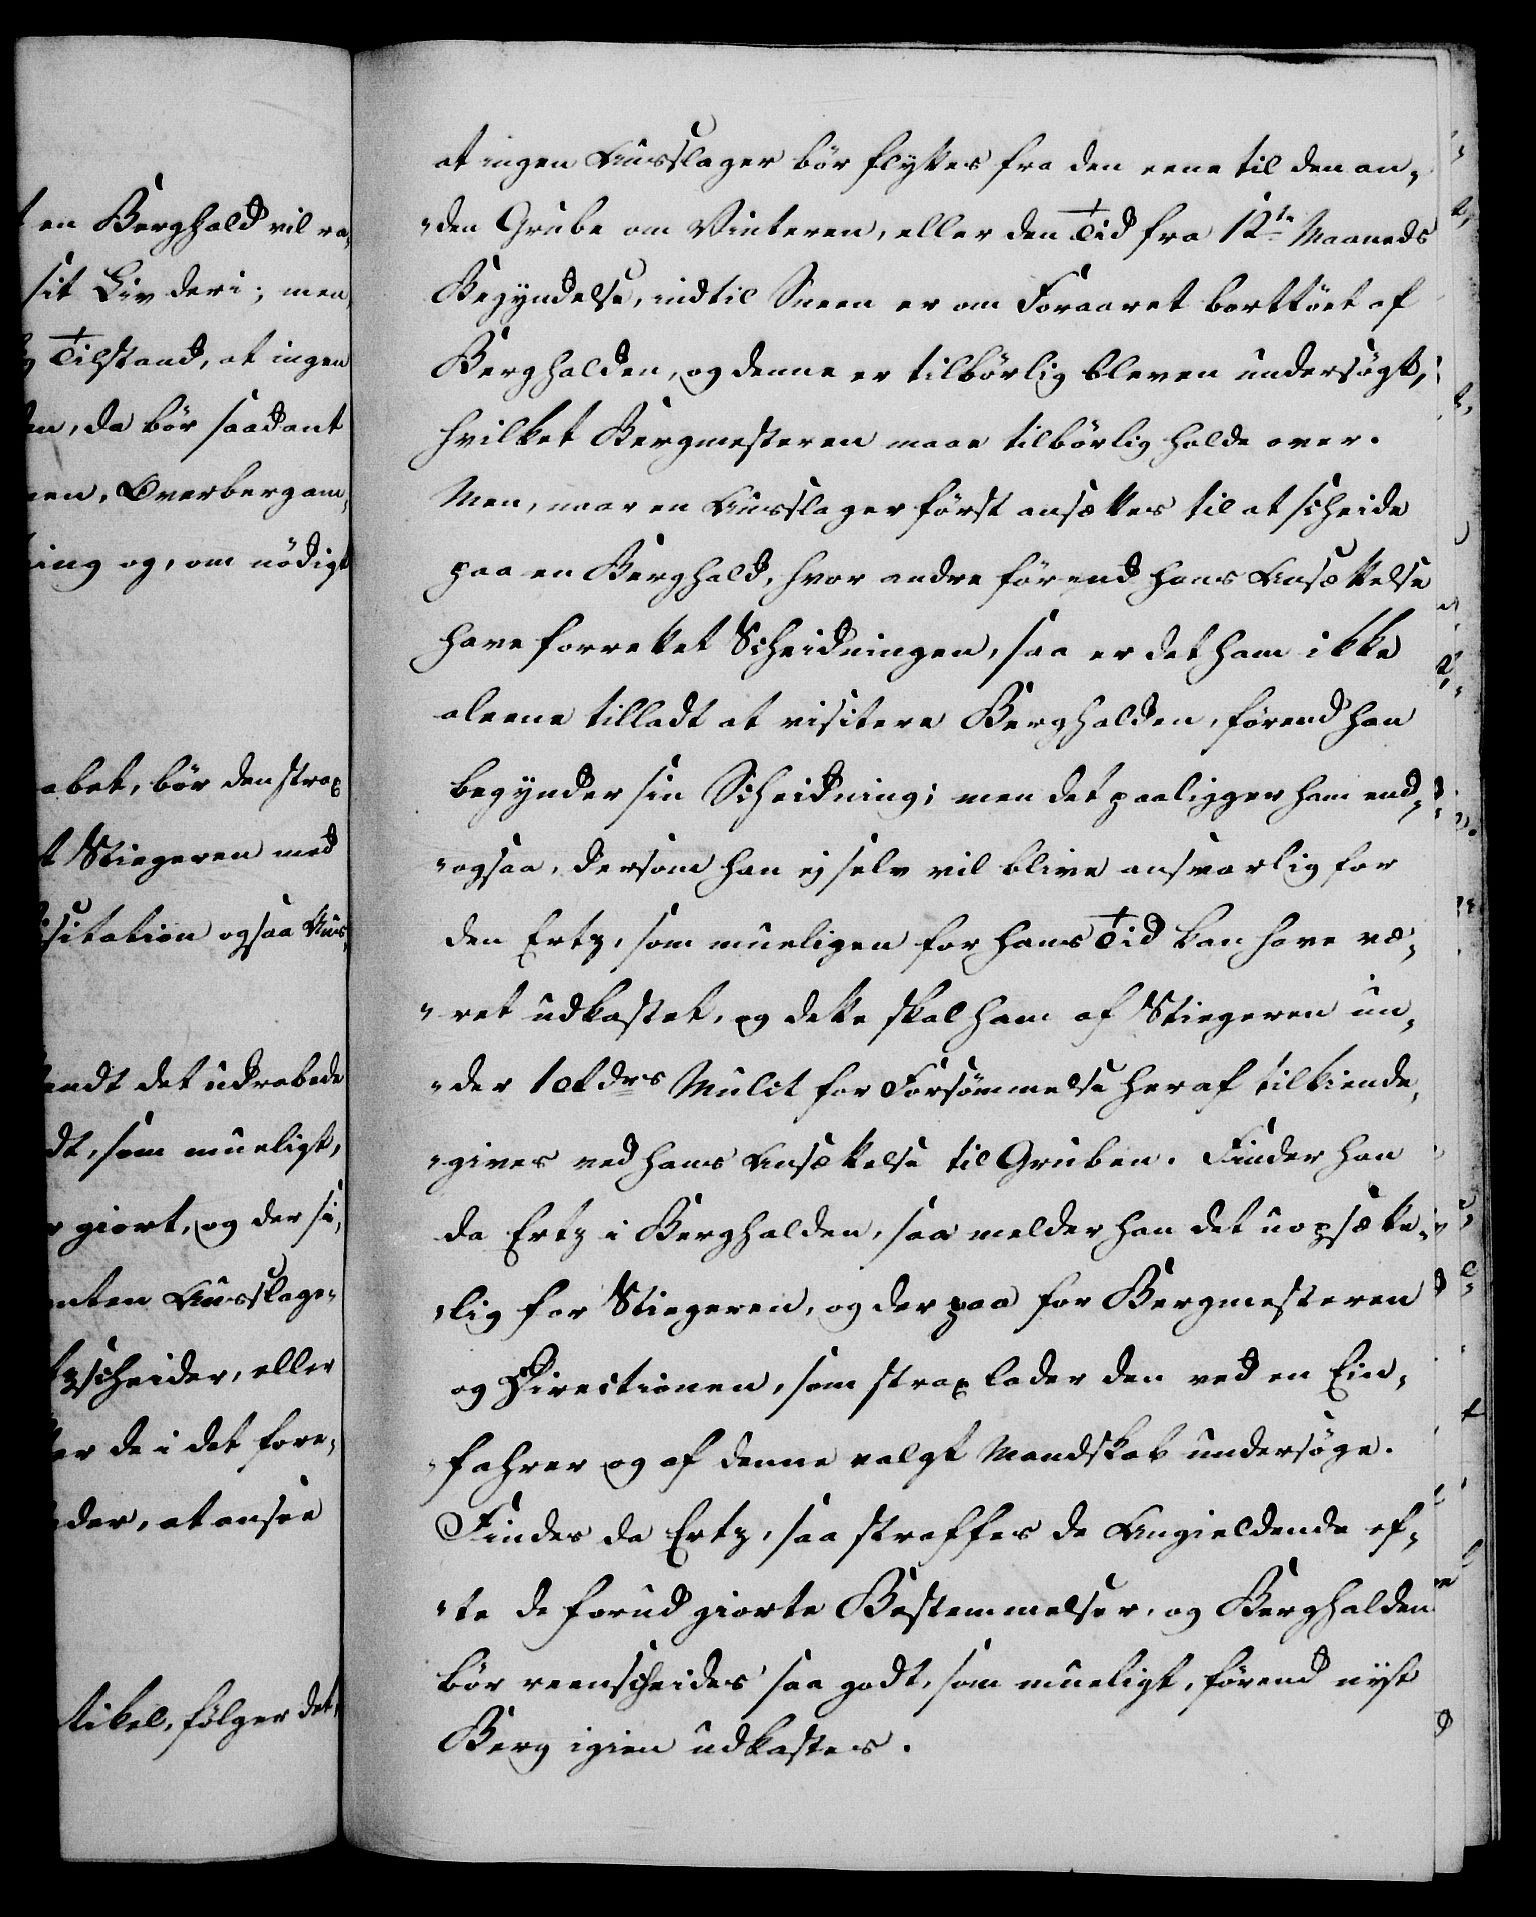 en Berghald vil ra-
sit Liv deri; men
Tilstand, at ingen
da bör saadant
Overbergam-
og, om nödigt
bör den strax
Stiegeren med
ogsaa Aus-
det udrabede
som mueligt,
giort, og der si-
Ausslage-
eller
de i det fore-
at ansee
fölger det,
at ingen Ausslager bör flyttes fra den eene til den an-
den Grube om Vinteren, eller den Tid fra 12te Maaneds
Begyndelse, indtil Sneen er om Foraaret borttöet af
Berghalden, og denne er tilbörlig bleven undersögt,
hvilket Bergmesteren maae tilbörlig holde over.
Men, naar en Ausslager först ansættes til at scheide
paa en Berghald, hvor andre förend hans Ansættelse
have forrettet Scheidningen, saa er det ham ikke
aleene tilladt at visitere Berghalden, förend han
begynder sin Scheidning; men det paaligger ham end-
ogsaa, dersom han ej selv vil blive ansvarlig for
den Ertz, som mueligen for hans Tid kan have væ-
ret udkastet, og dette skal ham af Stiegeren un-
der 1 Mulct for Forsömmelse heraf tilkiende-
gives ved hans Ansættelse til Gruben. Finder han
da Ertz i Berghalden, saa melder han det uopsætte-
lig for Stiegeren, og derpaa for Bergmesteren
og Directionen, som strax lader den ved en Ein-
fahrer og af denne valgt Mandskab undersöge.
Findes da Ertz, saa straffes de Angieldende ef-
te de forud giorte Bestemmelser, og Berghalden
bör reenscheides saa godt, som mueligt, förend nyt
Berg igien udkastes.